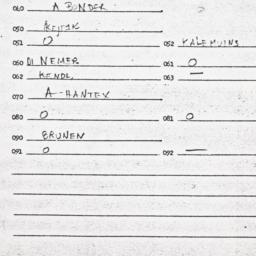 040 A BUNDER
050
051 O 052 KALEMUINS
060 DI NEMER 061 O
062 KENDL 063 —
070 A-HANTEX
080 O 081 O
090 BRUNEN
091 O 092 —